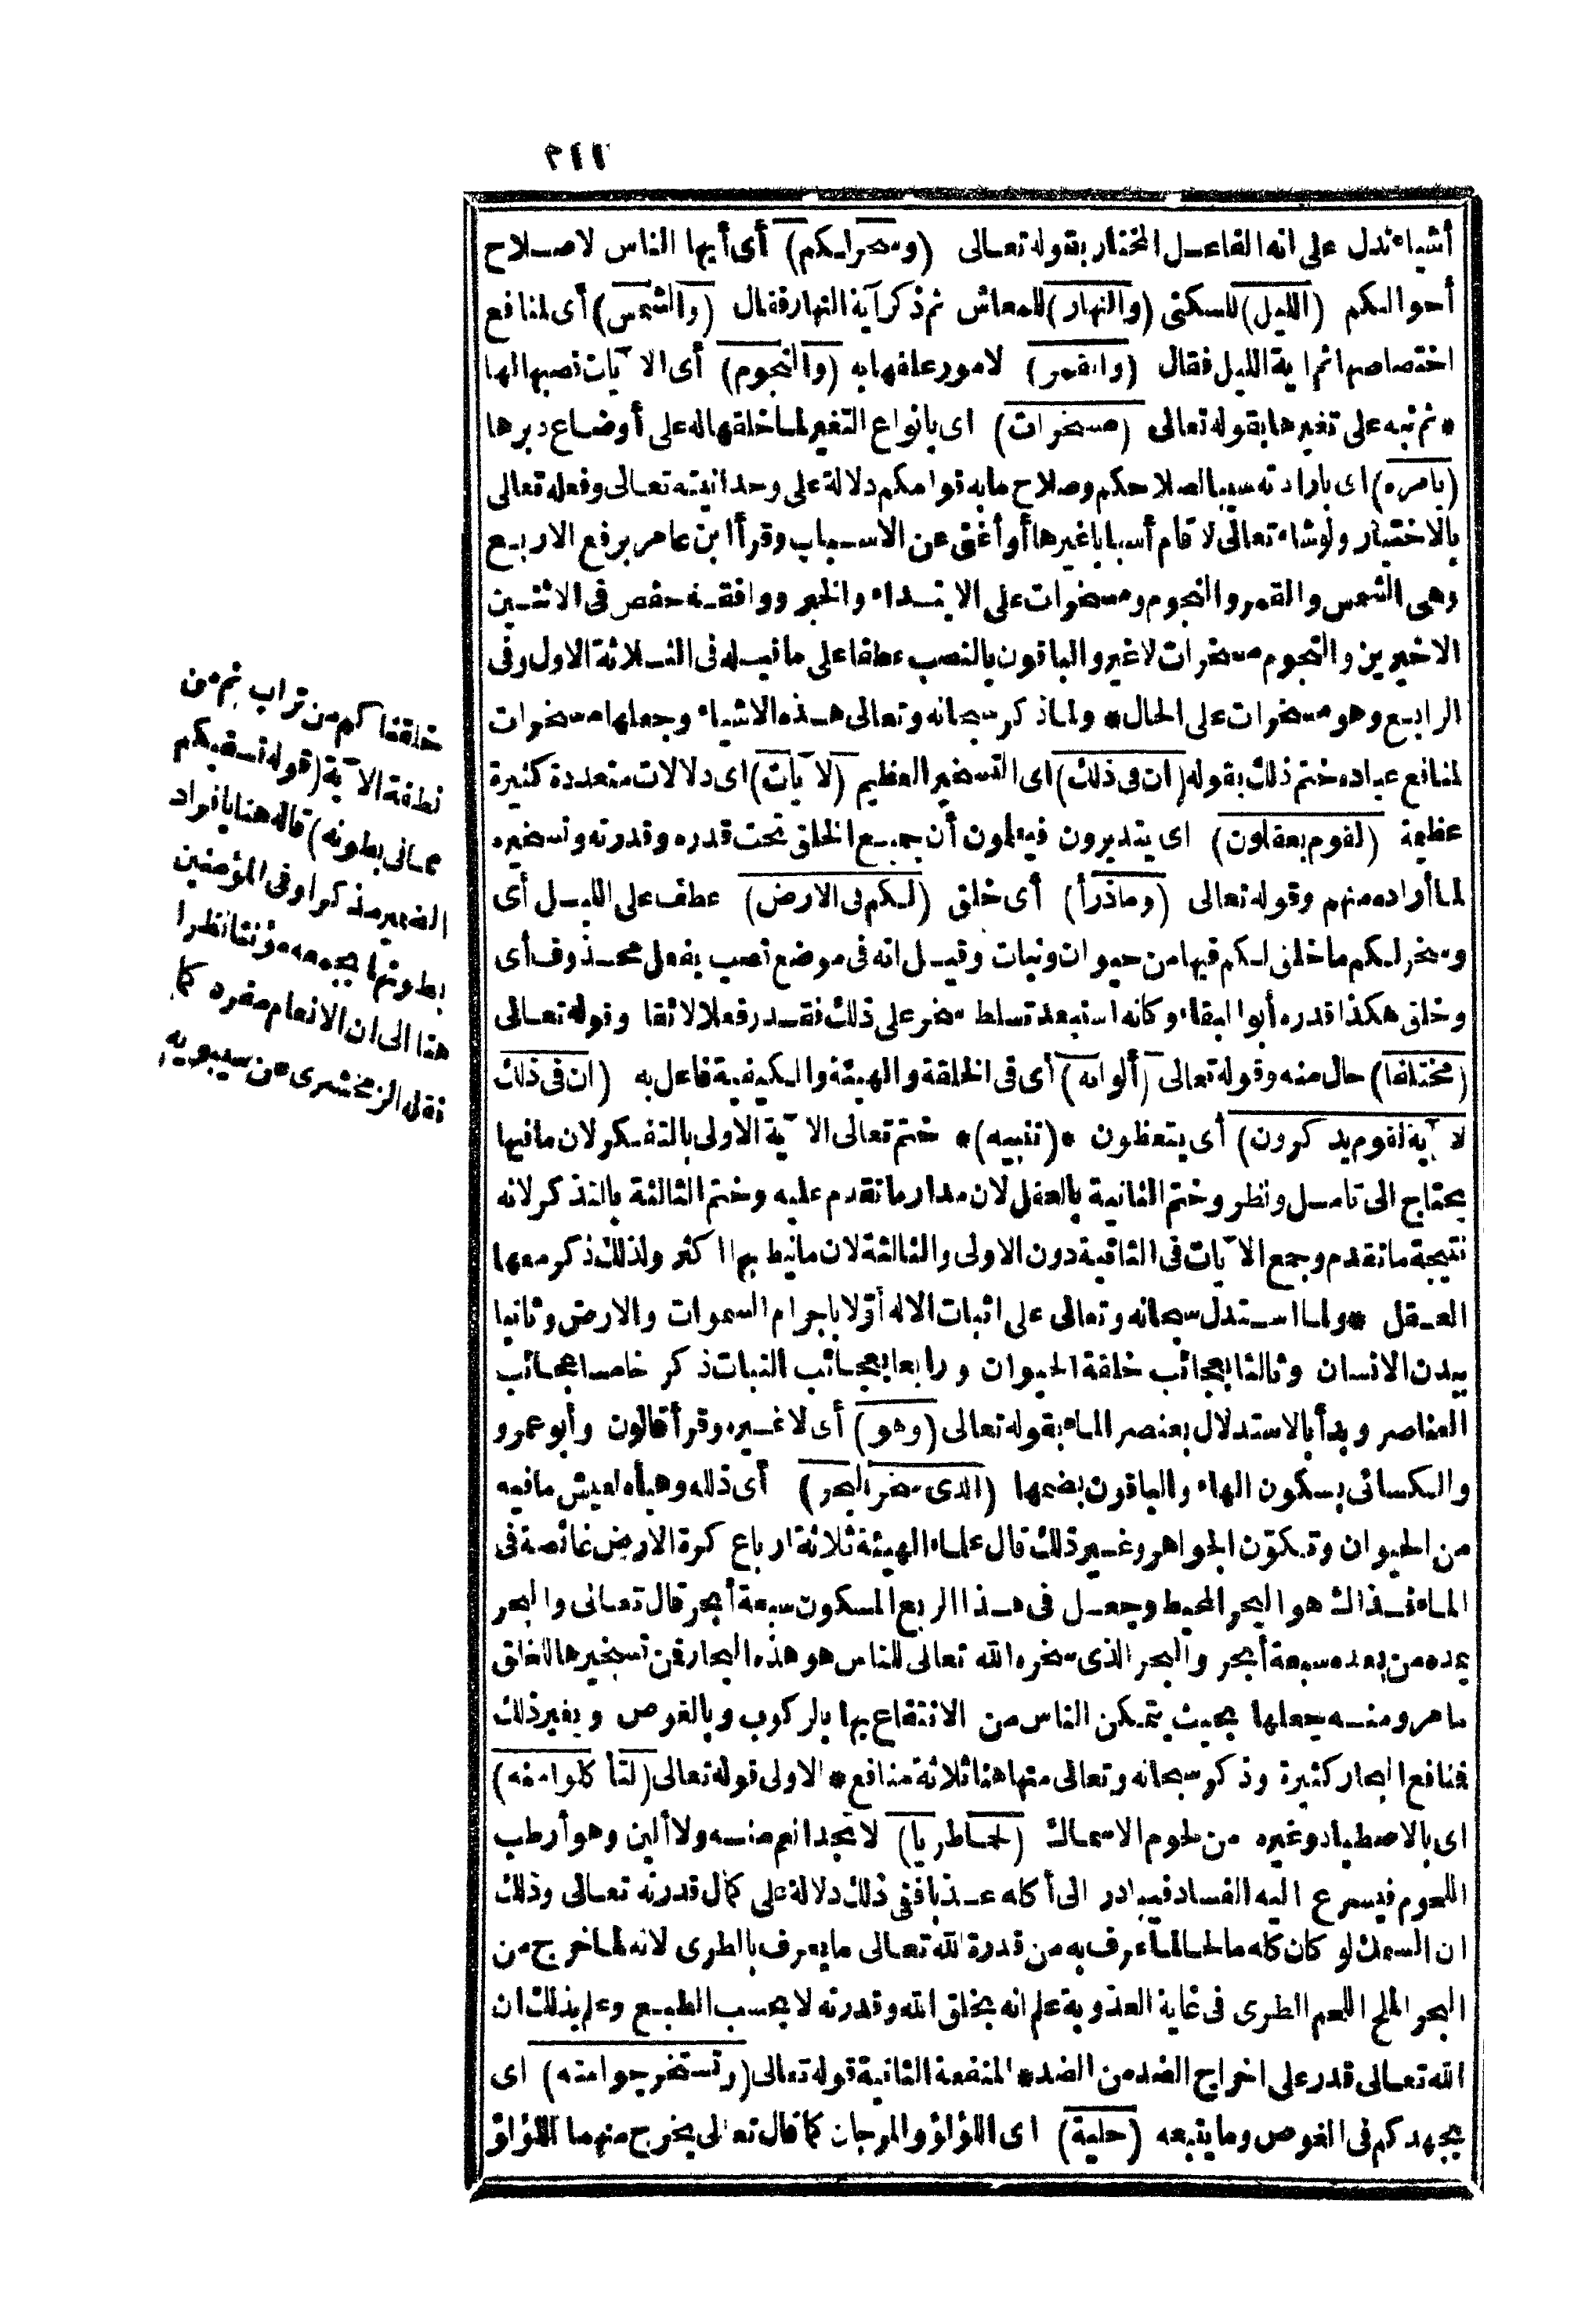 ٢١١
أشياء تدل على انه الفاعل المختار بقوله تعالى (وسخر لكم) أى أيها الناس لاصلاح
أحوالكم (الليل) للسكنى (والنهار) للمعاش ثم ذكر آية النهار فقال (والشمس) أى لمنافع
اختصاصها ثم اية الليل فقال (والقمر) لامور علقها به (والنجوم) أى الآيات نصبها لها
* ثم نبه على تغيرها بقوله تعالى (مسخرات) اى بانواع التغير لما خلقها له على أوضاع دبرها
(بامره) اى بارادته سببا لصلاحكم وصلاح ما به قوامكم دلالة على وحدانيته تعالى وفعله تعالى
بالاختيار ولو شاء تعالى لاقام أسبابا غيرها أو أغنى عن الاسباب وقرأ ابن عامر برفع الاربع
وهى الشمس والقمر والنجوم ومسخرات على الابتداء والخبر ووافقه حفص فى الاثنين
الاخيرين والنجوم مسخرات لا غير والباقون بالنصب عطفا على ما قبله فى الثلاثة الاول وفى
الرابع وهو مسخرات على الحال * ولما ذكر سبحانه وتعالى هذه الاشياء وجعلها مسخرات
لمنافع عباده ختم ذلك بقوله (ان فى ذلك) اى التسخير العظيم (لآيات) اى دلالات متعددة كثيرة
عظيمة (لقوم يعقلون) اى يتدبرون فيعلمون أن جميع الخلق تحت قدره وقدرته وتسخيره
لما أراده منهم وقوله تعالى (وما ذرأ) أى خلق (لكم فى الارض) عطف على الليل أى
وسخر لكم ما خلق لكم فيها من حيوان ونبات وقيل انه فى موضع نصب بفعل محذوف أى
وخلق هكذا قدره أبو البقاء وكانه استبعد تسلط سخر على ذلك فقدر فعلا لائقا وقوله تعالى
(مختلفا) حال منه وقوله تعالى (ألوانه) أى فى الخلقة والهيئة والكيفية فاعل به (ان فى ذلك
لآية لقوم يذكرون) أى يتعظون * (تنبيه) * ختم تعالى الآية الاولى بالتفكر لان ما فيها
يحتاج الى تامل ونظر وختم الثانية بالعقل لان مدار ما تقدم عليه وختم الثالثة بالتذكر لانه
نتيجة ما تقدم وجمع الآيات فى الثانية دون الاولى والثالثة لان ما نيط بها اكثر ولذلك ذكر معها
العقل * ولما استدل سبحانه وتعالى على اثبات الاله أوّلا باجرام السموات والارض وثانيا
ببدن الانسان وثالثا بعجائب خلقة الحيوان ورابعا بعجائب النبات ذكر خامسا عجائب
العناصر وبدأ بالاستدلال بعنصر الماء بقوله تعالى (وهو) أى لا غيره وقرأ قالون وأبو عمرو
والكسائى بسكون الهاء والباقون بضمها (الذى سخر البحر) أى ذلله وهيأه لعيش ما فيه
من الحيوان وتكوّن الجواهر وغير ذلك قال علماء الهيئة ثلاثة ارباع كرة الارض غائصة فى
الماء فذاك هو البحر المحيط وجعل فى هذا الربع المسكون سبعة أبحر قال تعالى والبحر
يمده من بعده سبعة أبحر والبحر الذى سخره الله تعالى للناس هو هذه البحار فمن تسخيرها للخلق
ما مر ومنه جعلها بحيث يتمكن الناس من الانتفاع بها بالركوب وبالغوص وبغير ذلك
فمنافع البحار كثيرة وذكر سبحانه وتعالى منها هنا ثلاثة منافع * الاولى قوله تعالى (لتأكلوا منه)
اى بالاصطياد وغيره من لحوم الاسماك (لحما طريا) لا تجد انعم منه ولا ألين وهو أرطب
اللحوم فيسرع اليه الفساد فيبادر الى أكله عذبا ففى ذلك دلالة على كمال قدرته تعالى وذلك
ان السمك لو كان كله مالحا لما عرف به من قدرة الله تعالى ما يعرف بالطرى لانه لما خرج من
البحر الملح اللحم الطرى فى غاية العذوبة علم انه بخلق الله وقدرته لا بحسب الطبع وعلم بذلك ان
الله تعالى قدر على اخراج الضد من الضد * المنفعة الثانية قوله تعالى (وتستخرجوا منه) اى
بجهدكم فى الغوص وما يتبعه (حلية) اى اللؤلؤ والمرجان كما قال تعالى يخرج منهما اللؤلؤ
خلقنا كم من تراب ثم من
نطفة الآية (قوله نسقيكم
مما فى بطونه) قاله هنا بافراد
الضمير مذكرا وفى المؤمنين
بطونها بجمعه مؤنثا نظرا
هنا الى ان الانعام مفرد كما
نقله الزمخشرى عن سيبويه